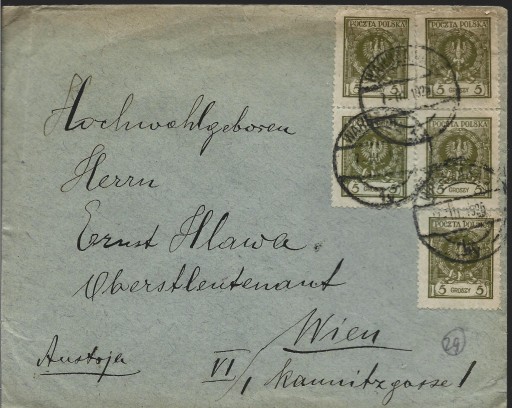 POCZTA POLSKA POCZTA POLSKA
5 GROSZY 5 5 GROSZY 5
POCZTA POLSKA POCZTA POLSKA
5 GROSZY 5 5 GROSZY 5
POCZTA POLSKA
5 GROSZY 5
Hochwohlgeboren
Herrn
Ernst Hlawa
Oberstleutenant
Wien
Austrja
VI/, Kaunitzgasse 1
24